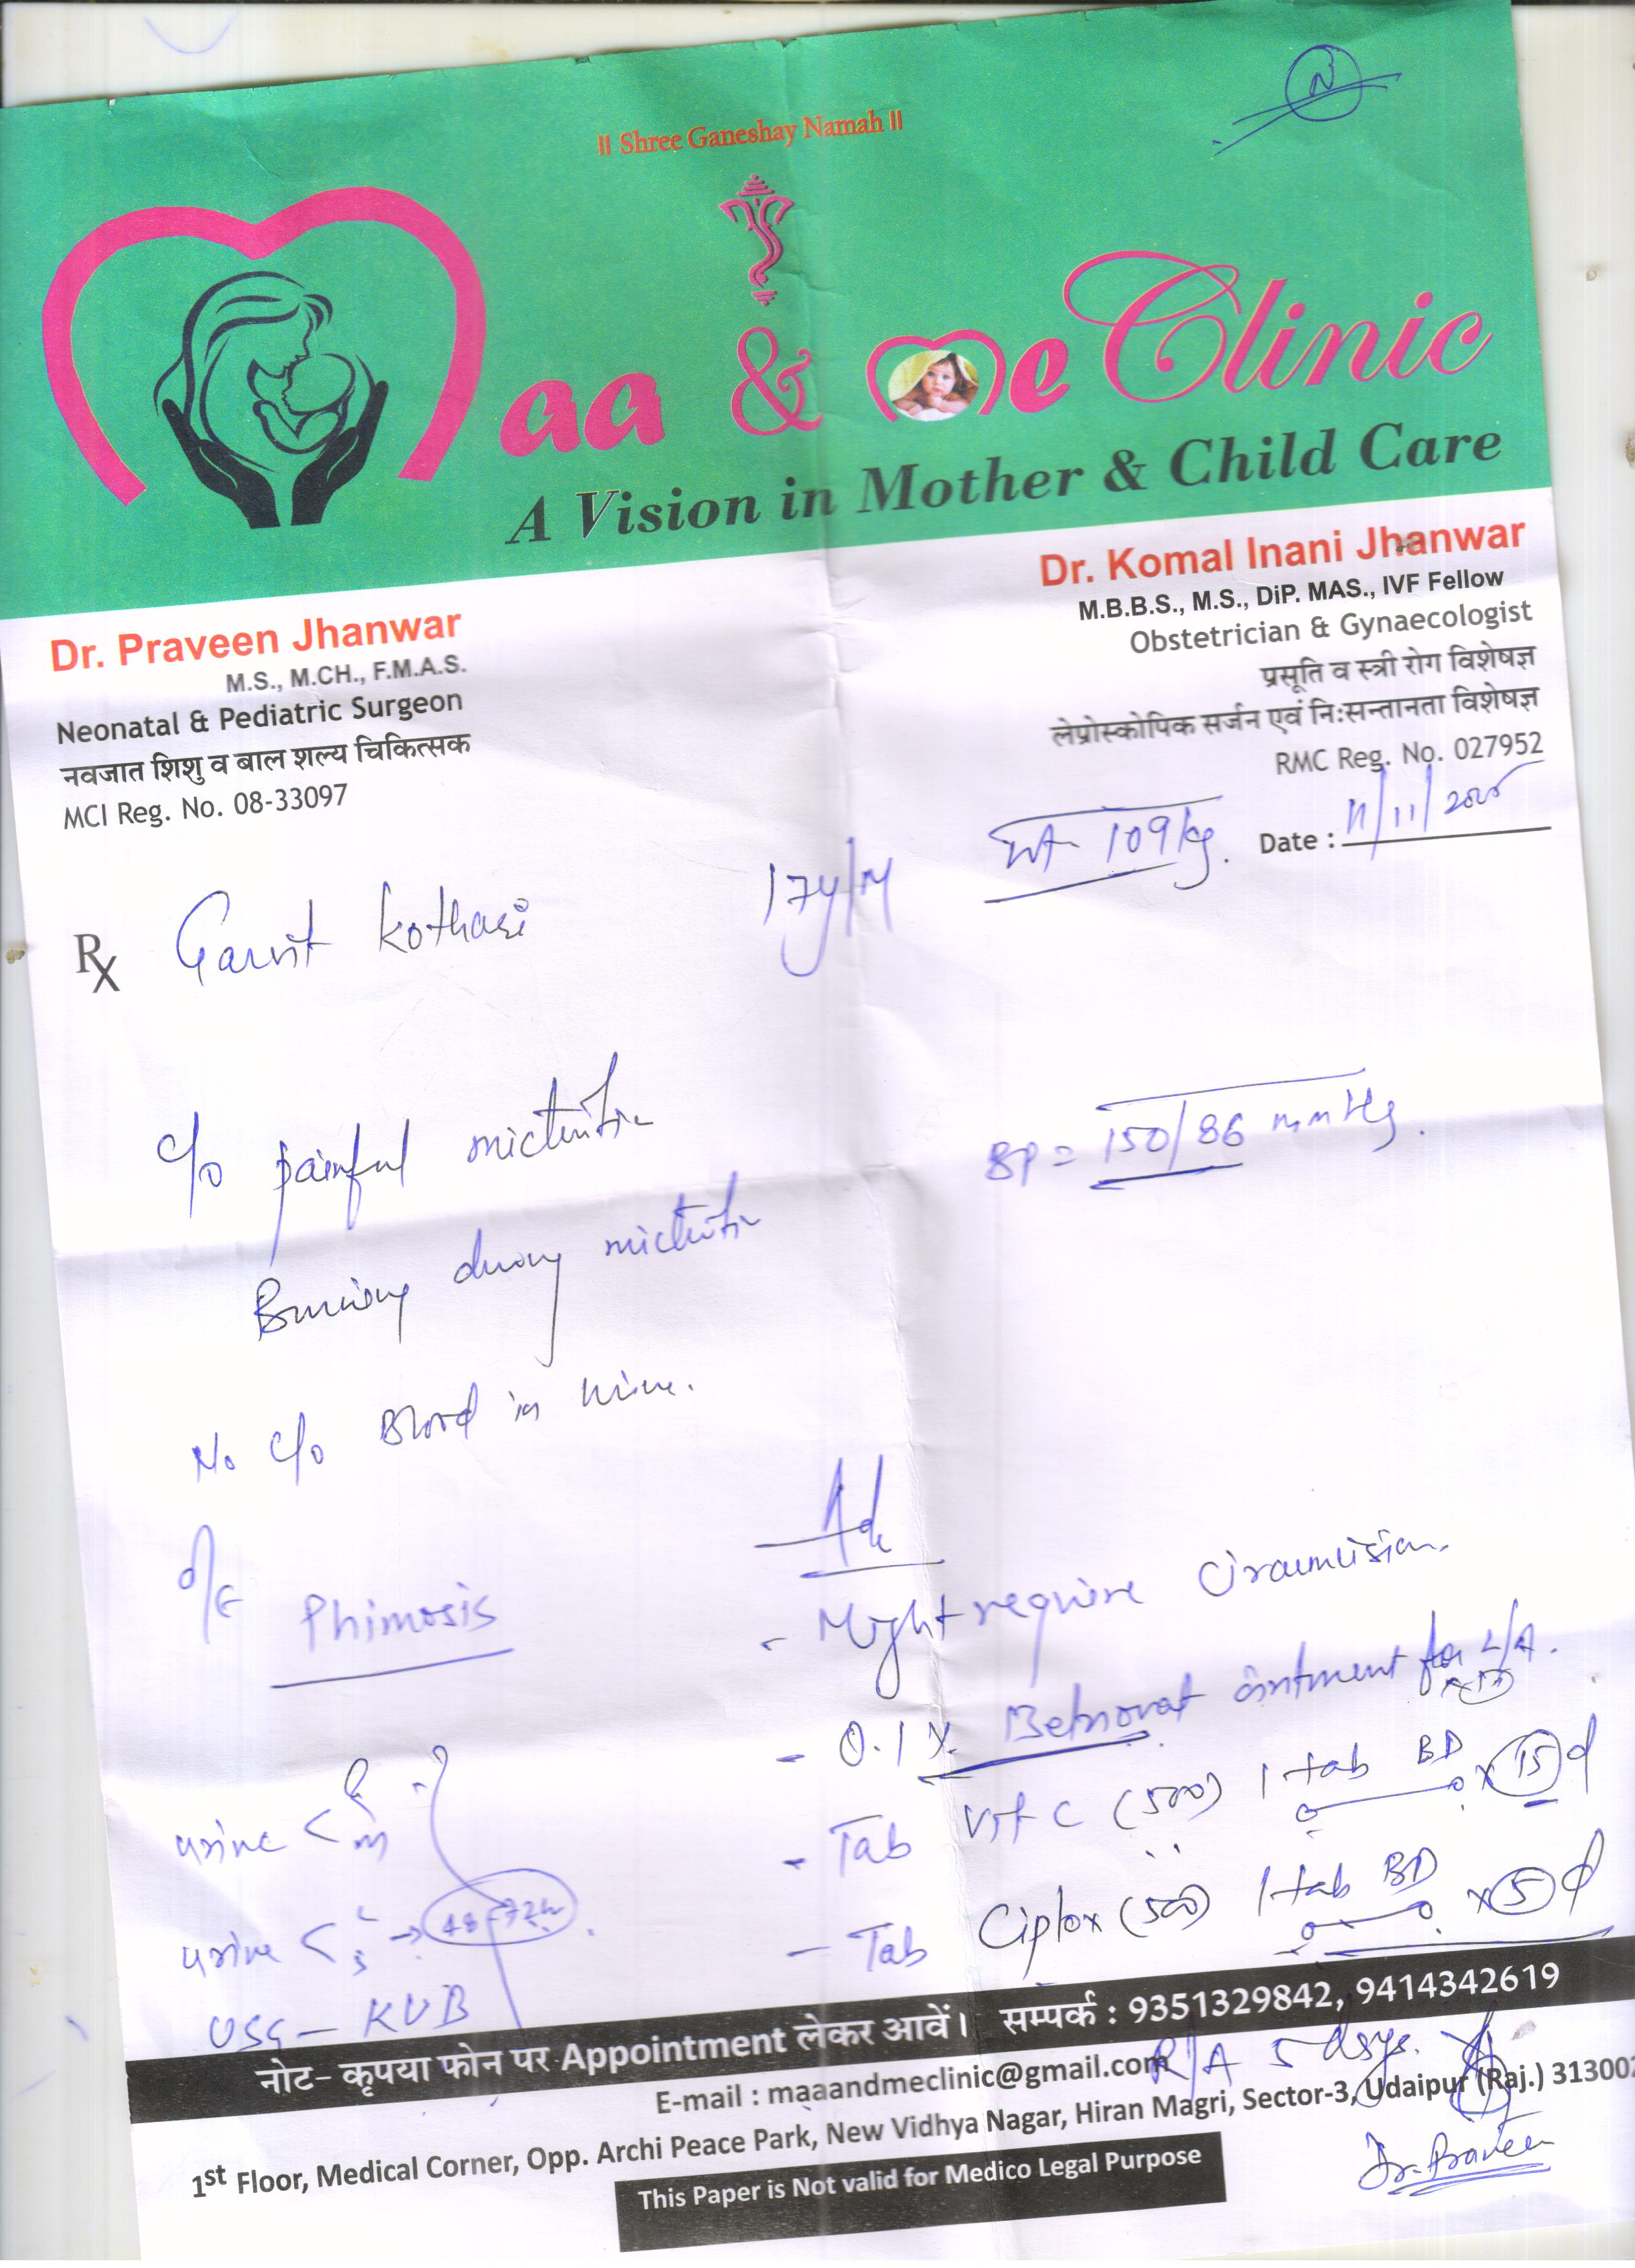 ॥ Shree Ganeshay Namah ॥
Maa & Me Clinic
A Vision in Mother & Child Care
Dr. Praveen Jhanwar
M.S., M.CH., F.M.A.S.
Neonatal & Pediatric Surgeon
नवजात शिशु व बाल शल्य चिकित्सक
MCI Reg. No. 08-33097
Dr. Komal Inani Jhanwar
M.B.B.S., M.S., DiP. MAS., IVF Fellow
Obstetrician & Gynaecologist
प्रसूति व स्त्री रोग विशेषज्ञ
लेप्रोस्कोपिक सर्जन एवं निःसन्तानता विशेषज्ञ
RMC Reg. No. 027952
Date : 11/11/
Wt- 109 kg.
Rx Garvit Kothari 17y/M
c/o painful micturition
BP = 150/86 mmHg.
Burning during micturition
No c/o Blood in urine.
O/E Phimosis
Adv
- Might require Circumcision.
- 0.1% Betnovat ointment for L/A.
- Tab Vit C (500) 1 tab BD x 15 d
- Tab Ciplox (500) 1 tab BD x 5 d
urine < R M
urine < C S → 48-72h
USG - KUB
R/A 5 days.
नोट- कृपया फोन पर Appointment लेकर आवें। सम्पर्क : 9351329842, 9414342619
E-mail : maaandmeclinic@gmail.com
1st Floor, Medical Corner, Opp. Archi Peace Park, New Vidhya Nagar, Hiran Magri, Sector-3, Udaipur (Raj.) 313002
This Paper is Not valid for Medico Legal Purpose
Dr. Praveen